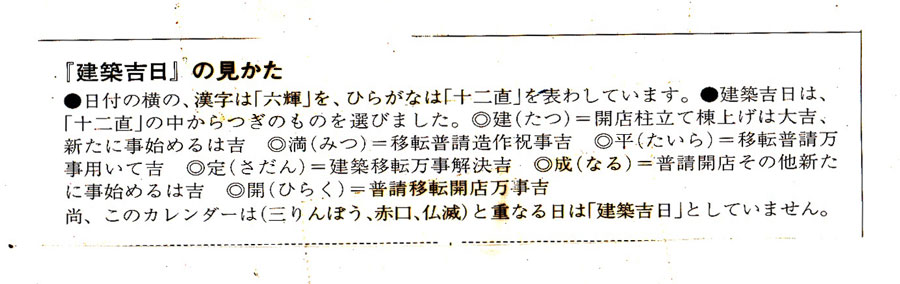 『建築吉日』の見かた
●日付の横の、漢字は「六輝」を、ひらがなは「十二直」を表わしています。●建築吉日は、
「十二直」の中からつぎのものを選びました。◎建(たつ)＝開店柱立て棟上げは大吉、
新たに事始めるは吉　◎満(みつ)＝移転普請造作祝事吉　◎平(たいら)＝移転普請万
事用いて吉　◎定(さだん)＝建築移転万事解決吉　◎成(なる)＝普請開店その他新た
に事始めるは吉　◎開(ひらく)＝普請移転開店万事吉
尚、このカレンダーは(三りんぼう、赤口、仏滅)と重なる日は「建築吉日」としていません。